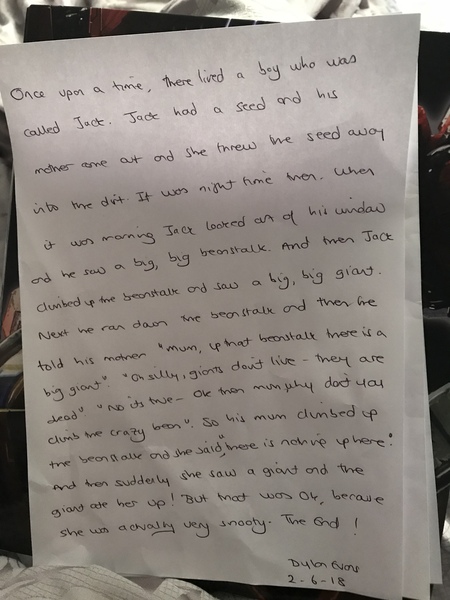 Once upon a time, there lived a boy who was
called Jack. Jack had a seed and his
mother came out and she threw the seed away
into the dirt. It was night time then. When
it was morning Jack looked out of his window
and he saw a big, big beanstalk. And then Jack
climbed up the beanstalk and saw a big, big giant.
Next he ran down the beanstalk and then he
told his mother "mum, up that beanstalk there is a
big giant". "Oh silly, giants don't live - they are
dead" "No its true - Ok then mum why don't you
climb the crazy bean". So his mum climbed up
the beanstalk and she said, "there is nothing up here".
And then suddenly she saw a giant and the
giant ate her up! But that was Ok, because
she was actually very snooty. The End!
Dylan Evans
2-6-18